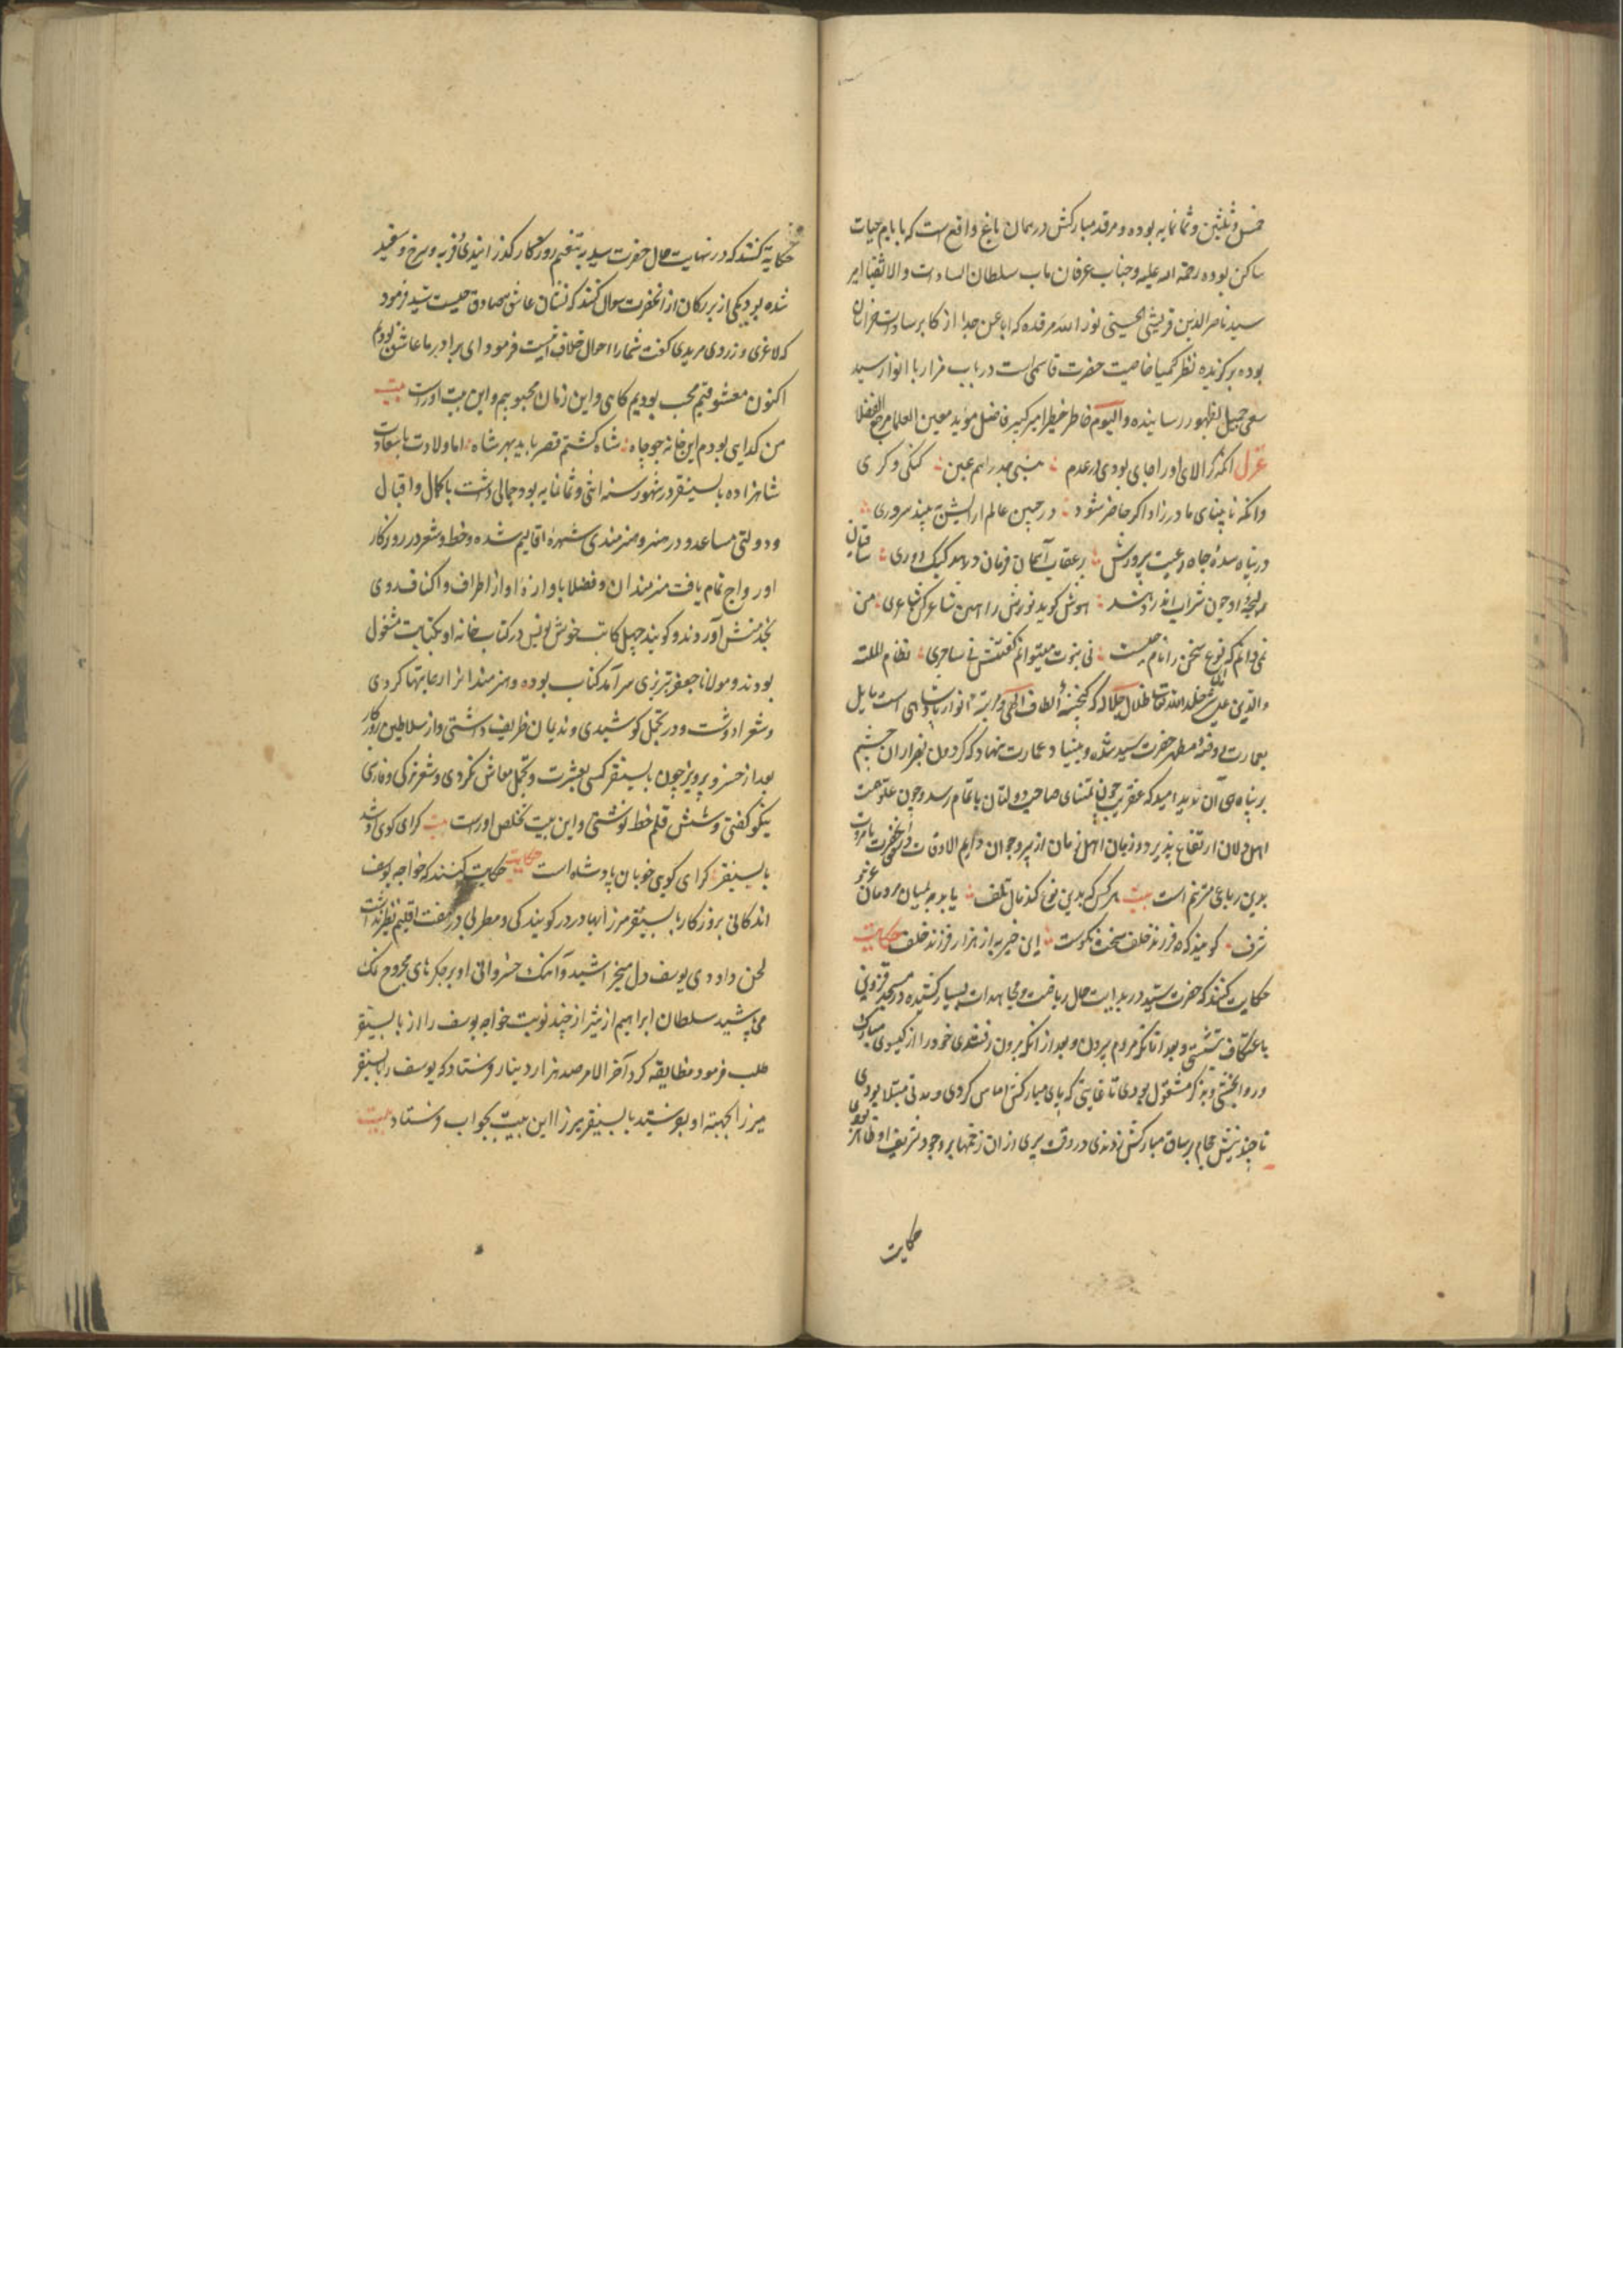 خمس و ثلثین و ثمانمایه بوده و مرقد مبارکش در همان باغ واقع است که بایام حیات
ساکن بوده رحمة الله علیه و جناب عرفان ماب سلطان السادات والاتقیا امیر
سید ناصر الدین قریشی الحسینی نور الله مرقده که ابا عن جدا از اکابر سادات خراسان
بوده برگزیده نظر کیمیا خاصیت حضرت قاسمی است در باب مزار با انوار سید
سعی جمیل بظهور رسانیده و الیوم خاطر خطیر امیر کبیر فاضل مؤید معین العلما مربی الفضلا
غزل آنکه گر الای او را جای بودی در عدم نیستی جذر اصم عین کنگی و کری
وانکه نابینای مادر زاد اگر حاضر شود در جبین عالم ارایش بیند سروری
در پناه سدهٔ جاه رعیت پرورش بر عقاب آسمان فرمان دهد کبک دری
هوش گوید نورش را هین شاعری من
نمی دانم که این نوع سخن را نام چیست نی نبوت میتوانم گفتنش نی ساحری نظام الملة
والدین علی شیر خلد الله تعالی ظلال جلاله که گنجینهٔ الطاف الهی و انوار پادشاهی است مایل
بعمارت روضه مطهر حضرت سید شده و بنیاد عمارت نهاد که گردون بهزاران چشم
بر پناه آن ندید امید که عنقریب چون تمنای صاحب دولتان باتمام رسد و چون علو همت
اهل دلان ارتفاع پذیرد و زبان اهل زمان از پیر و جوان دایم الاوقات
بدین رباعی مترنم است بیت هر کس که بدین نوع کند مال تلف یابد بمیان مردمان عز و
شرف گویند که فرزند خلف سخت نکوست این خیر به از هزار فرزند خلف حکایت
حکایت کنند که حضرت سید در بدایت حال ریاضت و مجاهدات بسیار کشیده در مسجد قزوین
باعتکاف نشستی و بعد از آنکه مردم بیرون رفتندی خود را از گیسوی مبارک
در آویختی و بذکر مشغول بودی تا غایتی که پای مبارکش اماس کردی و مدتی مبتلا بودی
تا چند نیش حجام بر ساق مبارکش زدندی در وقت پیری از ان زخمها بر وجود شریف او ظاهر بودی
حکایت
حکایة کنند که در نهایت حال حضرت سید به تنعم روزگار گذرانیدی و فربه و سرخ و سفید
شده بود یکی از بزرگان از آنحضرت سوال کند که نشان عاشق صادق چیست سید فرمود
که لاغری و زردی مریدی گفت شما را احوال خلاف اینست فرمود ای برادر ما عاشق بودیم
اکنون معشوقیم محب بودیم گاهی و این زمان محبوبیم و این بیت اوراست بیت
من گدایی بودم این خانه چو چاه شاه گشتم قصر باید بهر شاه اما ولادت با سعادت
شاهزاده بایسنقر در شهور سنه اثنی و ثمانمایه بود جمالی داشت با کمال و اقبال
و دولتی مساعد و در هنر و هنرمندی شهرهٔ اقالیم شده و خط و شعر در روزگار
او رواج تمام یافت هنرمندان و فضلا باوازهٔ او از اطراف و اکناف روی
بخدمتش آوردند و گویند چهل کاتب خوش نویس در کتاب خانه او بکتابت مشغول
بودند و مولانا جعفر تبریزی سر آمد کتاب بوده و هنرمندانرا رعایتها کردی
و شعر ادوست و در تجمل کوشیدی و ندیمان ظریف داشتی و از سلاطین روزگار
بعد از خسرو پرویز چون بایسنقر کسی بعشرت و تجمل معاش نکردی و شعر ترکی و فارسی
نیکو گفتی و شش قلم خط نوشتی و این بیت تخلص اوراست بیت گدای کوی او شد
بایسنقر گدای کوی خوبان پادشاه است حکایت حکایت کنند که خواجه یوسف
اندکانی بروزگار بایسنقر میرزا بهادر در گویندگی و مطربی در هفت اقلیم نظیر نداشت
لحن داودی یوسف دل میخراشید و آهنگ خسروانی او بر جگرهای مجروح نمک
می‌پاشید سلطان ابراهیم از شیراز چند نوبت خواجه یوسف را از بایسنقر
طلب فرمود مضایقه کرد آخر الامر صد هزار دینار فرستاد که یوسف را بایسنقر
میرزا بجهته او بفرستد بایسنقر میرزا این بیت بجواب فرستاد بیت